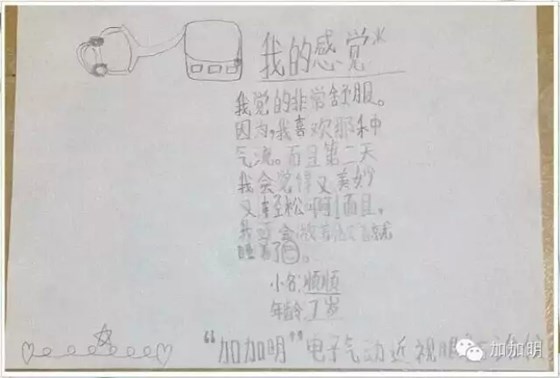 我的感觉*
我觉的非常舒服。
因为,我喜欢那种
气流。而且第二天
我会觉得又美妙
又轻松啊!而且,
我 会 就
睡着了
小名:顺顺
年龄:7岁
“加加明”电子气动近视眼
加加明